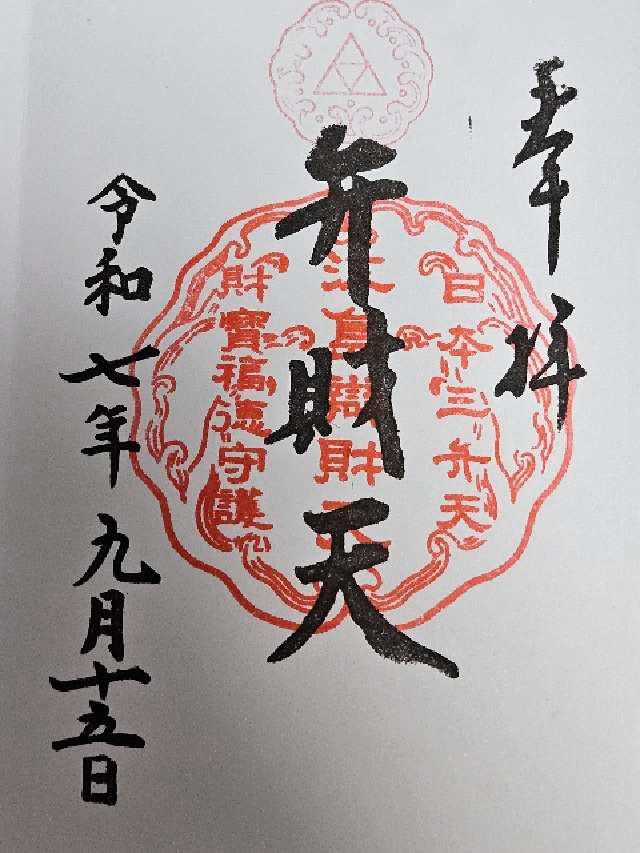 奉拝
日本三弁天
弁財天
財寶福徳守護
令和七年九月十五日